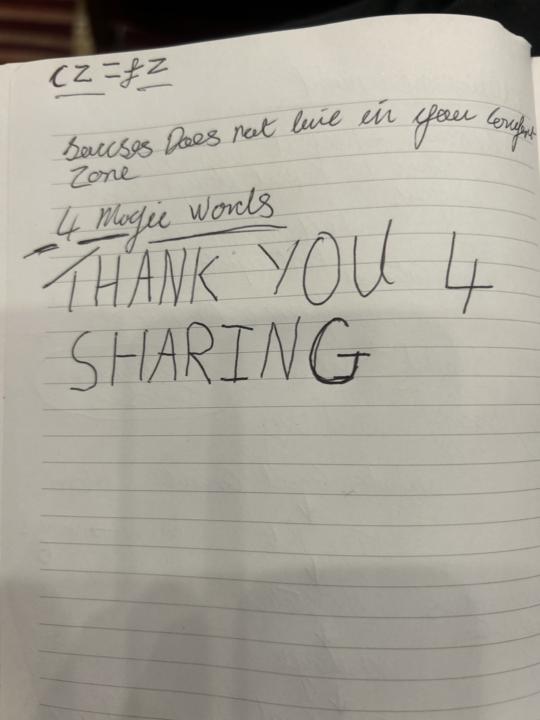 CZ = £Z
Saucses Does not live in your Comfort
Zone
4 Magic Words
THANK YOU 4
SHARING